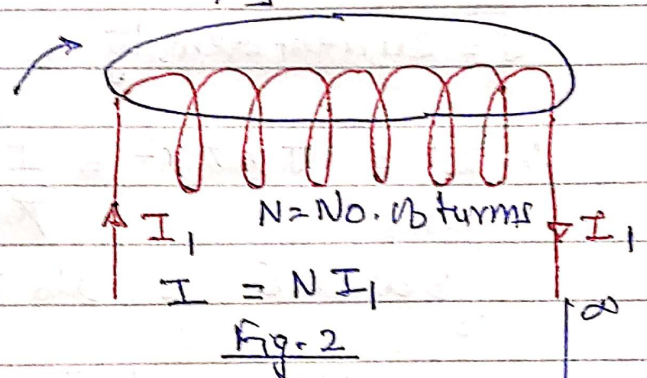 I₁ N=No. of turns I₁
I = NI₁
∞
Fig. 2